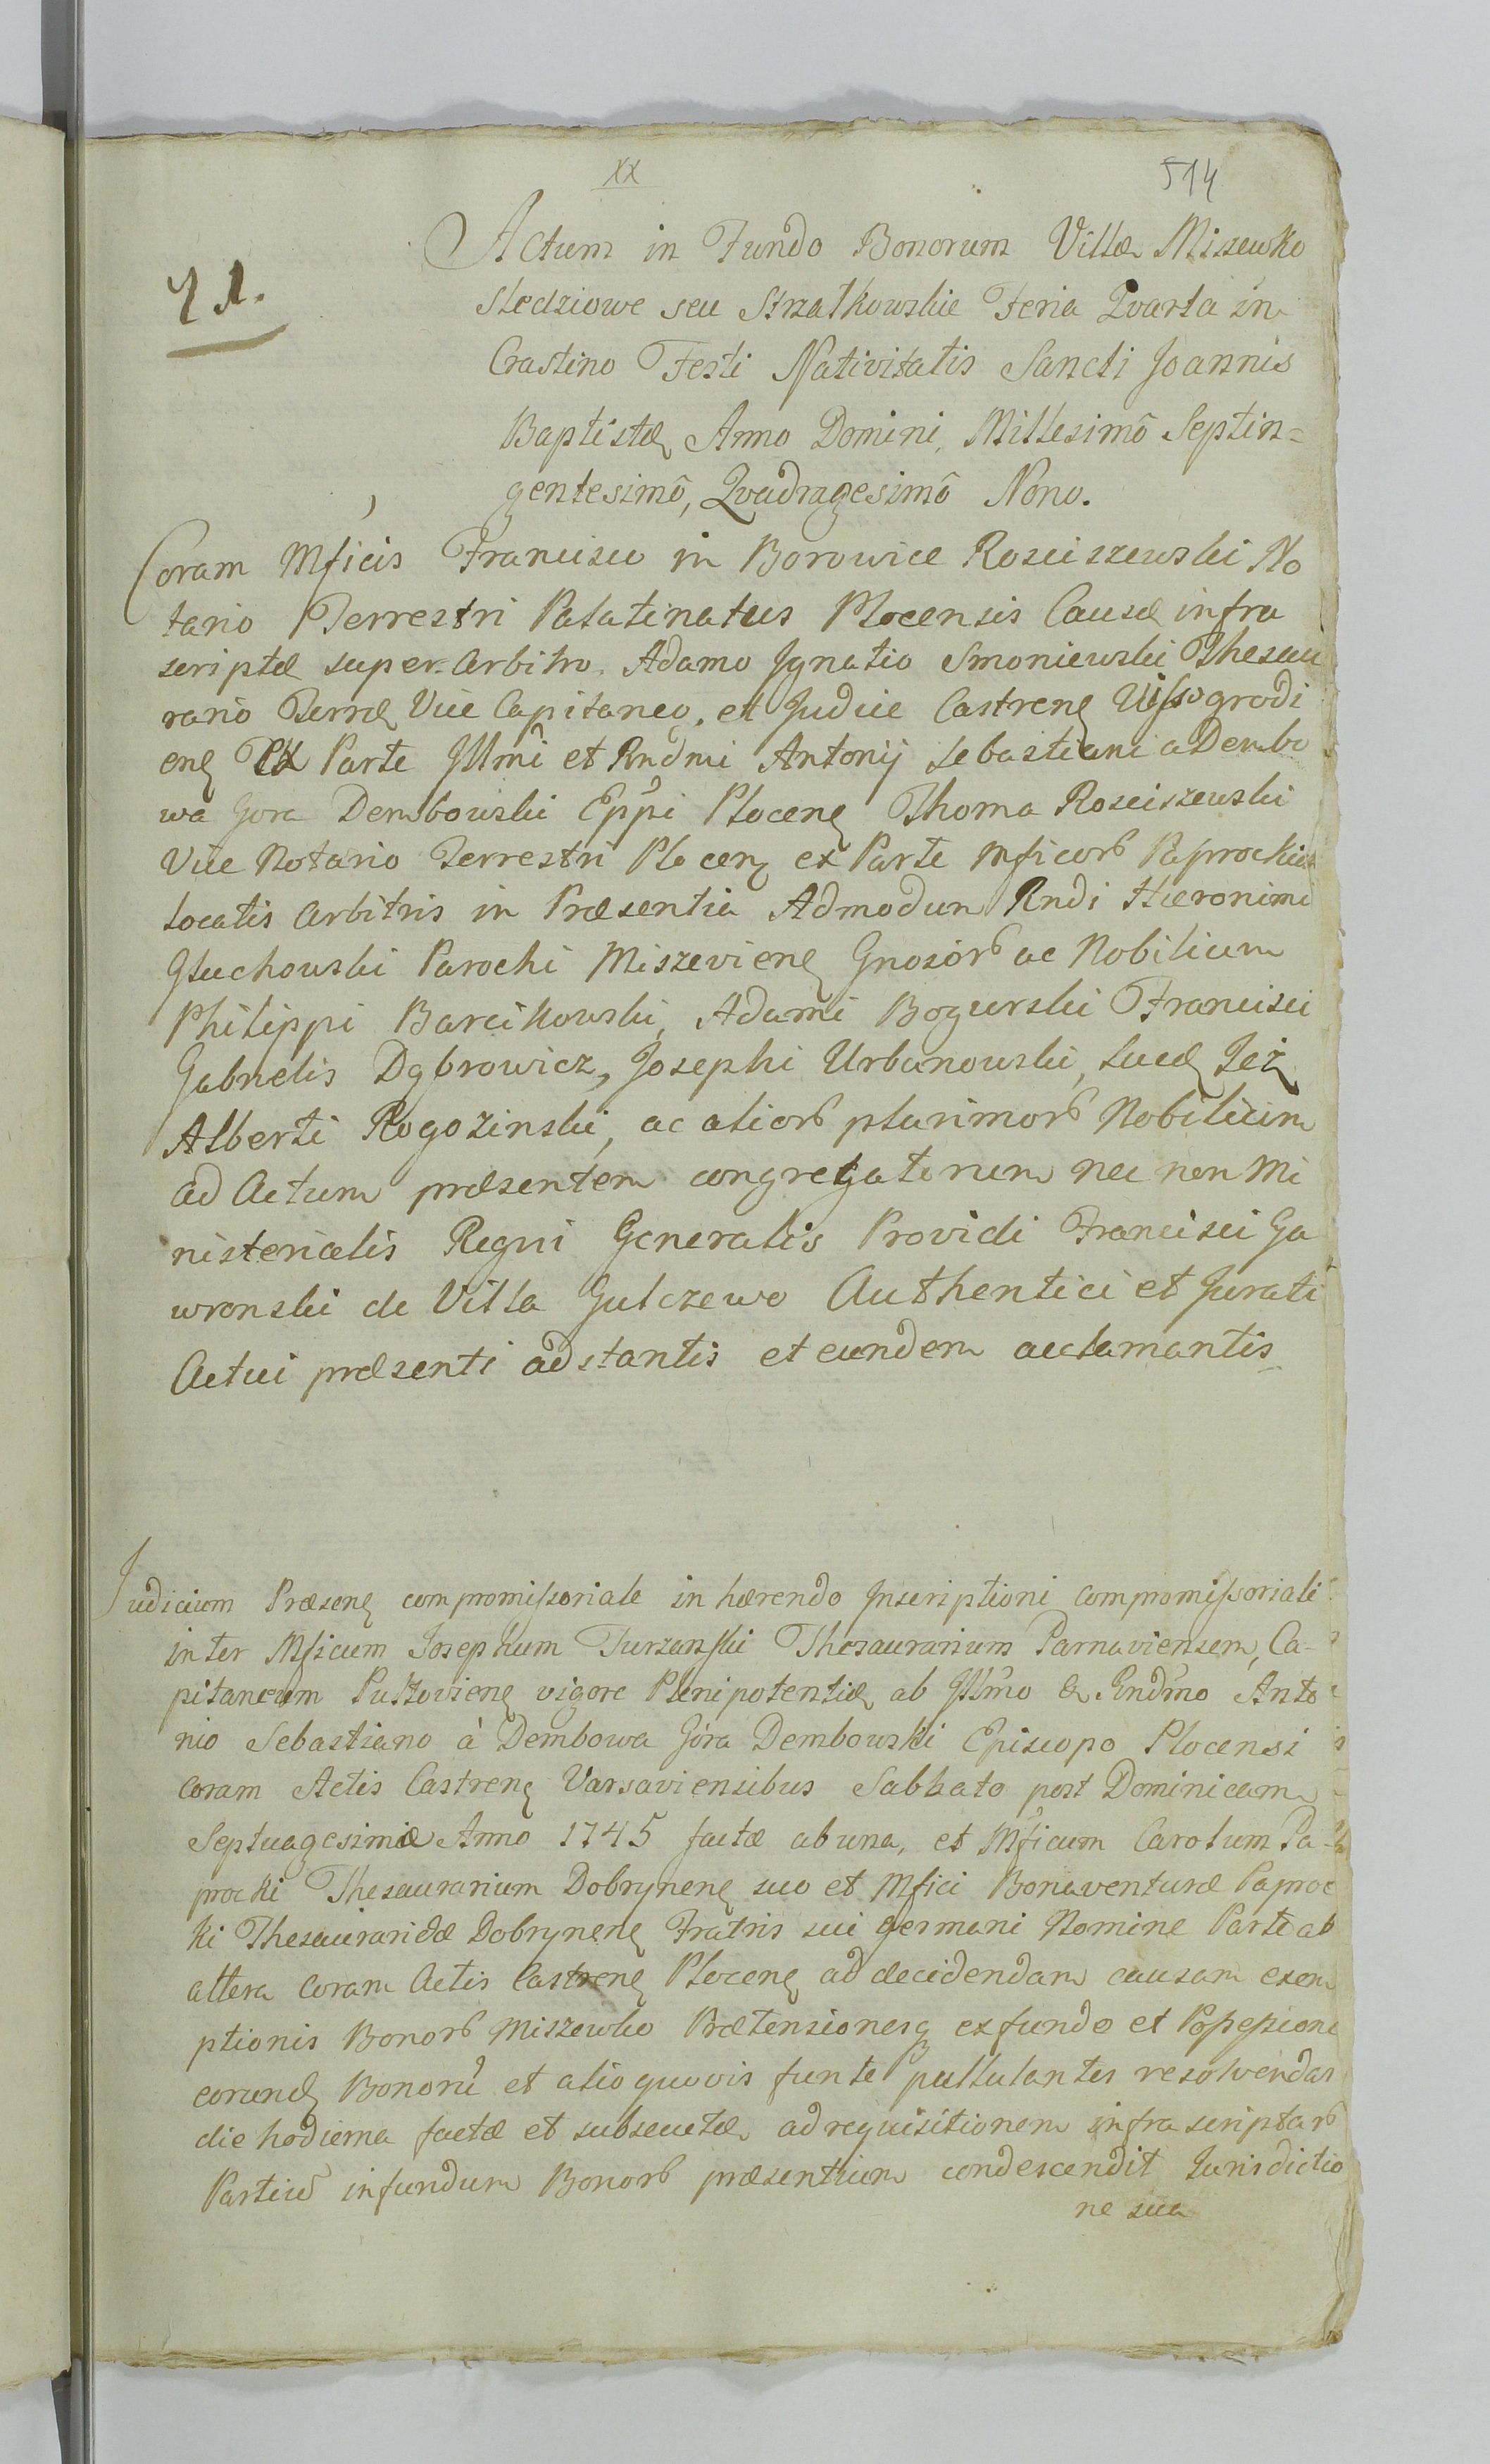 XX
514
71.
Actum in Fundo Bonorum Villæ Miszewko
Sledziowe seu Strzałkowskie Feria Qvarta in
Crastino Festi Nativitatis Sancti Joannis
Baptistæ Anno Domini, Millesimô Septin=
gentesimô, Qvadragesimô Nono.
Coram Mficis Francisco in Borowice Rosciszewski No
tario Terrestri Palatinatus Plocensis Causæ infra
scriptæ super-arbitro. Adamo Jgnatio Smoniewski Thesau
rario Terræ Vice Capitaneo, et Judice Castrenę Vissogrodi
enę Ex Parte Jllmi et Rndmi Antonij Sebastiani a Dembo
wa Gora Dembowski Eppi Plocenę Thoma Rosciszewski
Vice Notario Terrestri Plocenę ex Parte Mficorb Paprockich
locatis arbitris in Præsentia Admodum Rndi Hieronimi
Głuchowski Parochi Miszevienę Gnosorb ac Nobilium
Philippi Barcikowski, Adami Bogurski Francisci
Gabrielis Dąbrowicz, Josephi Urbanowski, Lucæ Jeż
Alberti Rogozinski, ac aliorb plurimorb Nobilium
ad Actum præsentem congregatorum nec non Mi
nisterialis Regni Generalis Providi Francisci Ga
wronski de Villa Gulczewo Authentici et Jurati
Actui præsenti adstantis et eundem acclamantis
Judicium Præsenę compromissoriale in hærendo Jnscriptioni compromissoriali
inter Mficum Josephum Turzanski Thesaurarium Parnaviensem, Ca-
pitaneum Pułtovienę vigore Plenipotentiæ ab Jllmo & Rndmo Anto
nio Sebastiano à Dembowa Góra Dembowski Episcopo Plocensi
coram Actis Castrenę Varsaviensibus Sabbato post Dominicam
Septuagesimæ Anno 1745 factæ ab una, et Mficum Carolum Pa-
procki Thesaurarium Dobrynenę suo et Mfici Bonaventuræ Paproc
ki Thesauraridæ Dobrynenę Fratris sui germani Nomine Parte ab
altera coram Actis Castrenę Plocenę ad decidendam causam exem
ptionis Bonorb Miszewko Prætensionesq ex fundo et Possessione
eorundę Bonorū et alio quovis funte pullulantes resolvendas
die hodierna factæ et subsecutæ, ad requisitionem infra scriptarb
Partiū in fundum Bonorb præsentium condescendit Jurisdictio
ne sua